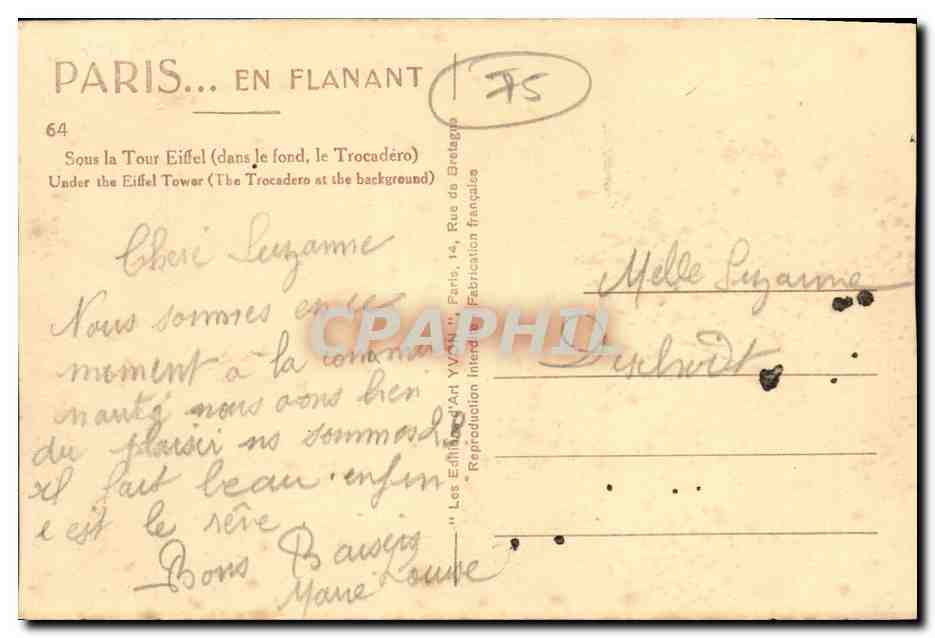 PARIS... EN FLANANT
64
Sous la Tour Eiffel (dans le fond, le Trocadéro)
Under the Eiffel Tower (The Trocadero at the background)
75
Cheré Suzanne
Nous sommes en ce
moment à la commu
nauté nous avons bien
du plaisir ns sommes
il fait beau enfin
c est le rêve
Bons Baisers
Marie Louise
" Les Editions d'Art YVON ", Paris, 14, Rue de Bretagne
" Reproduction Interdite " Fabrication française
Melle Suzanne
CPAPHIL